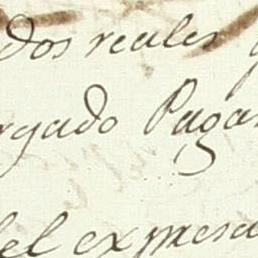 dos reales
rgado Pagar
del expresa